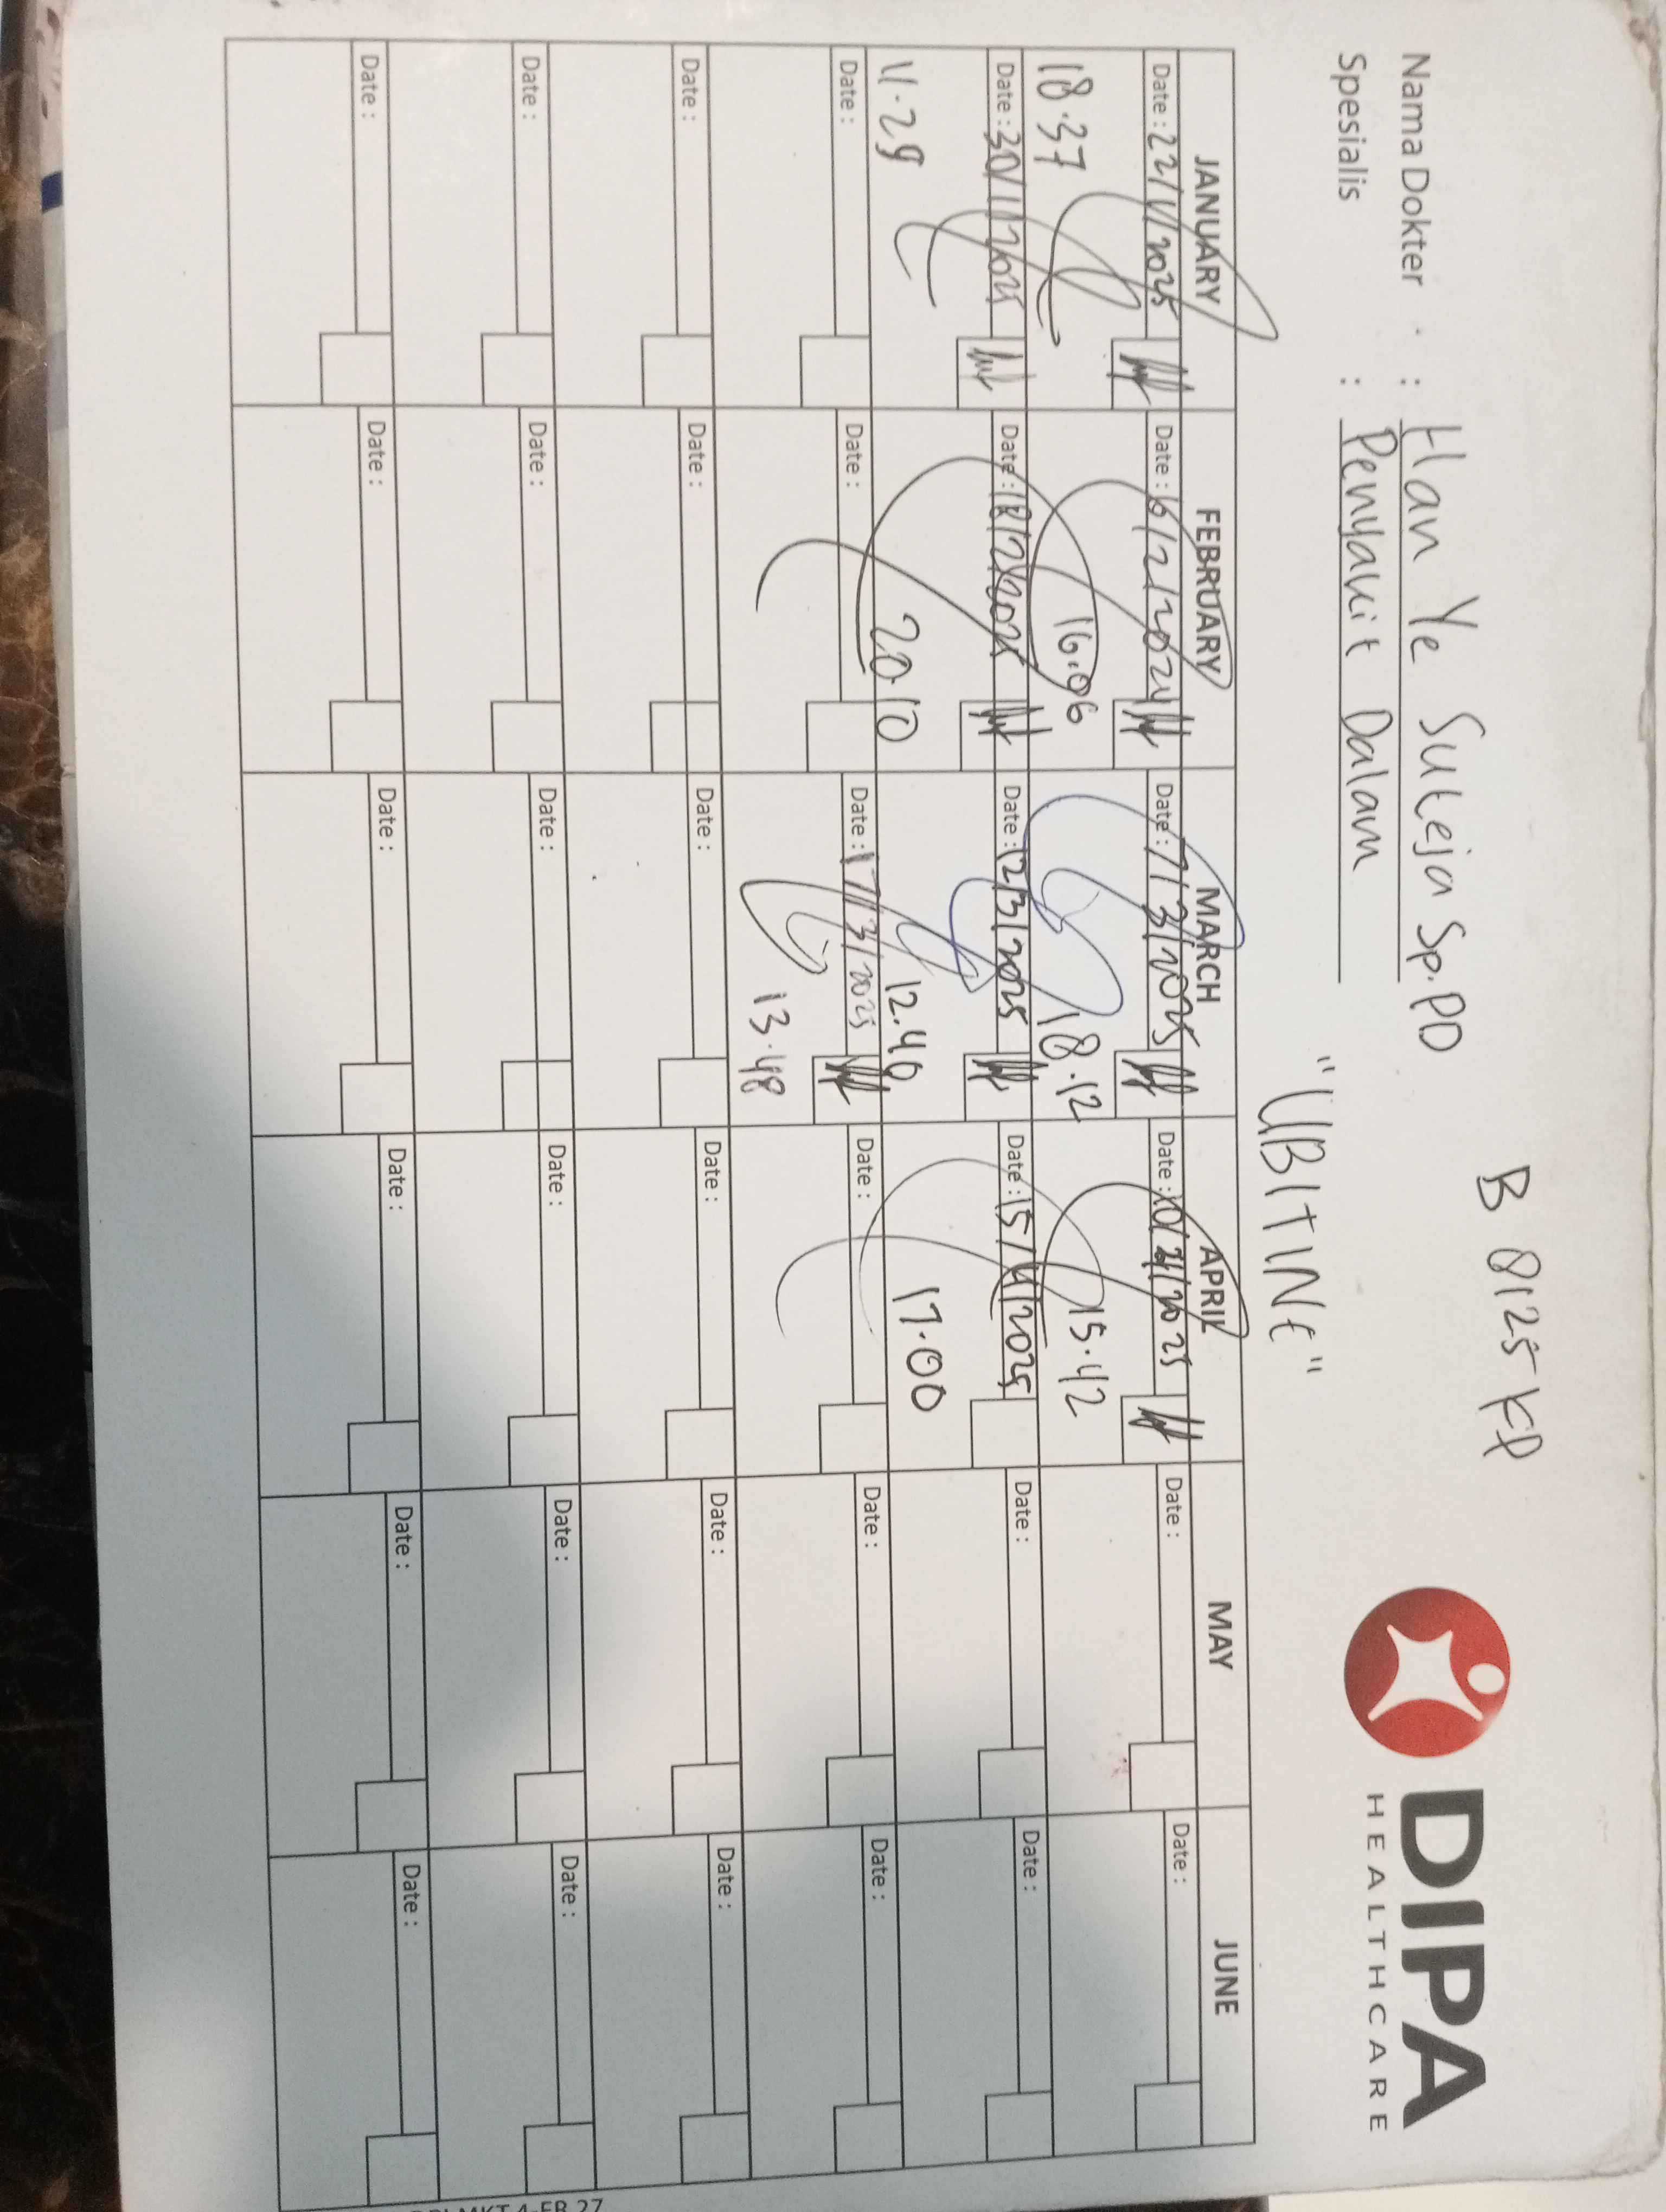 B 8125 KP
DIPA
HEALTHCARE
Nama Dokter : Han Ye Suteja Sp.PD
Spesialis : Penyakit Dalam
"UBITINE"
JANUARY FEBRUARY MARCH APRIL MAY JUNE
Date : 22/1/2025 Date : 6/2/2024 Date : 7/3/2025 Date : 10/4/2025 Date : Date :
18.37 16.06 18.12 15.42
Date : 30/1/2025 Date : 18/2/2025 Date : 12/3/2025 Date : 15/4/2025 Date : Date :
11.29 20.10 12.40 17.00
Date : Date : Date : 17/3/2025 Date : Date : Date :
13.48
Date : Date : Date : Date : Date : Date :
Date : Date : Date : Date : Date : Date :
Date : Date : Date : Date : Date : Date :